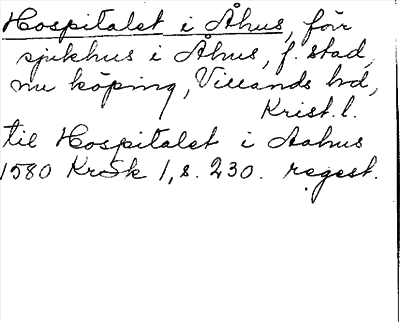 Hospitalet i Åhus, förr
sjukhus i Åhus, f. stad,
nu köping, Villands hd,
Krist. l.
til Hospitalet i Aahus
1580 KrSk 1, s. 230. regest.